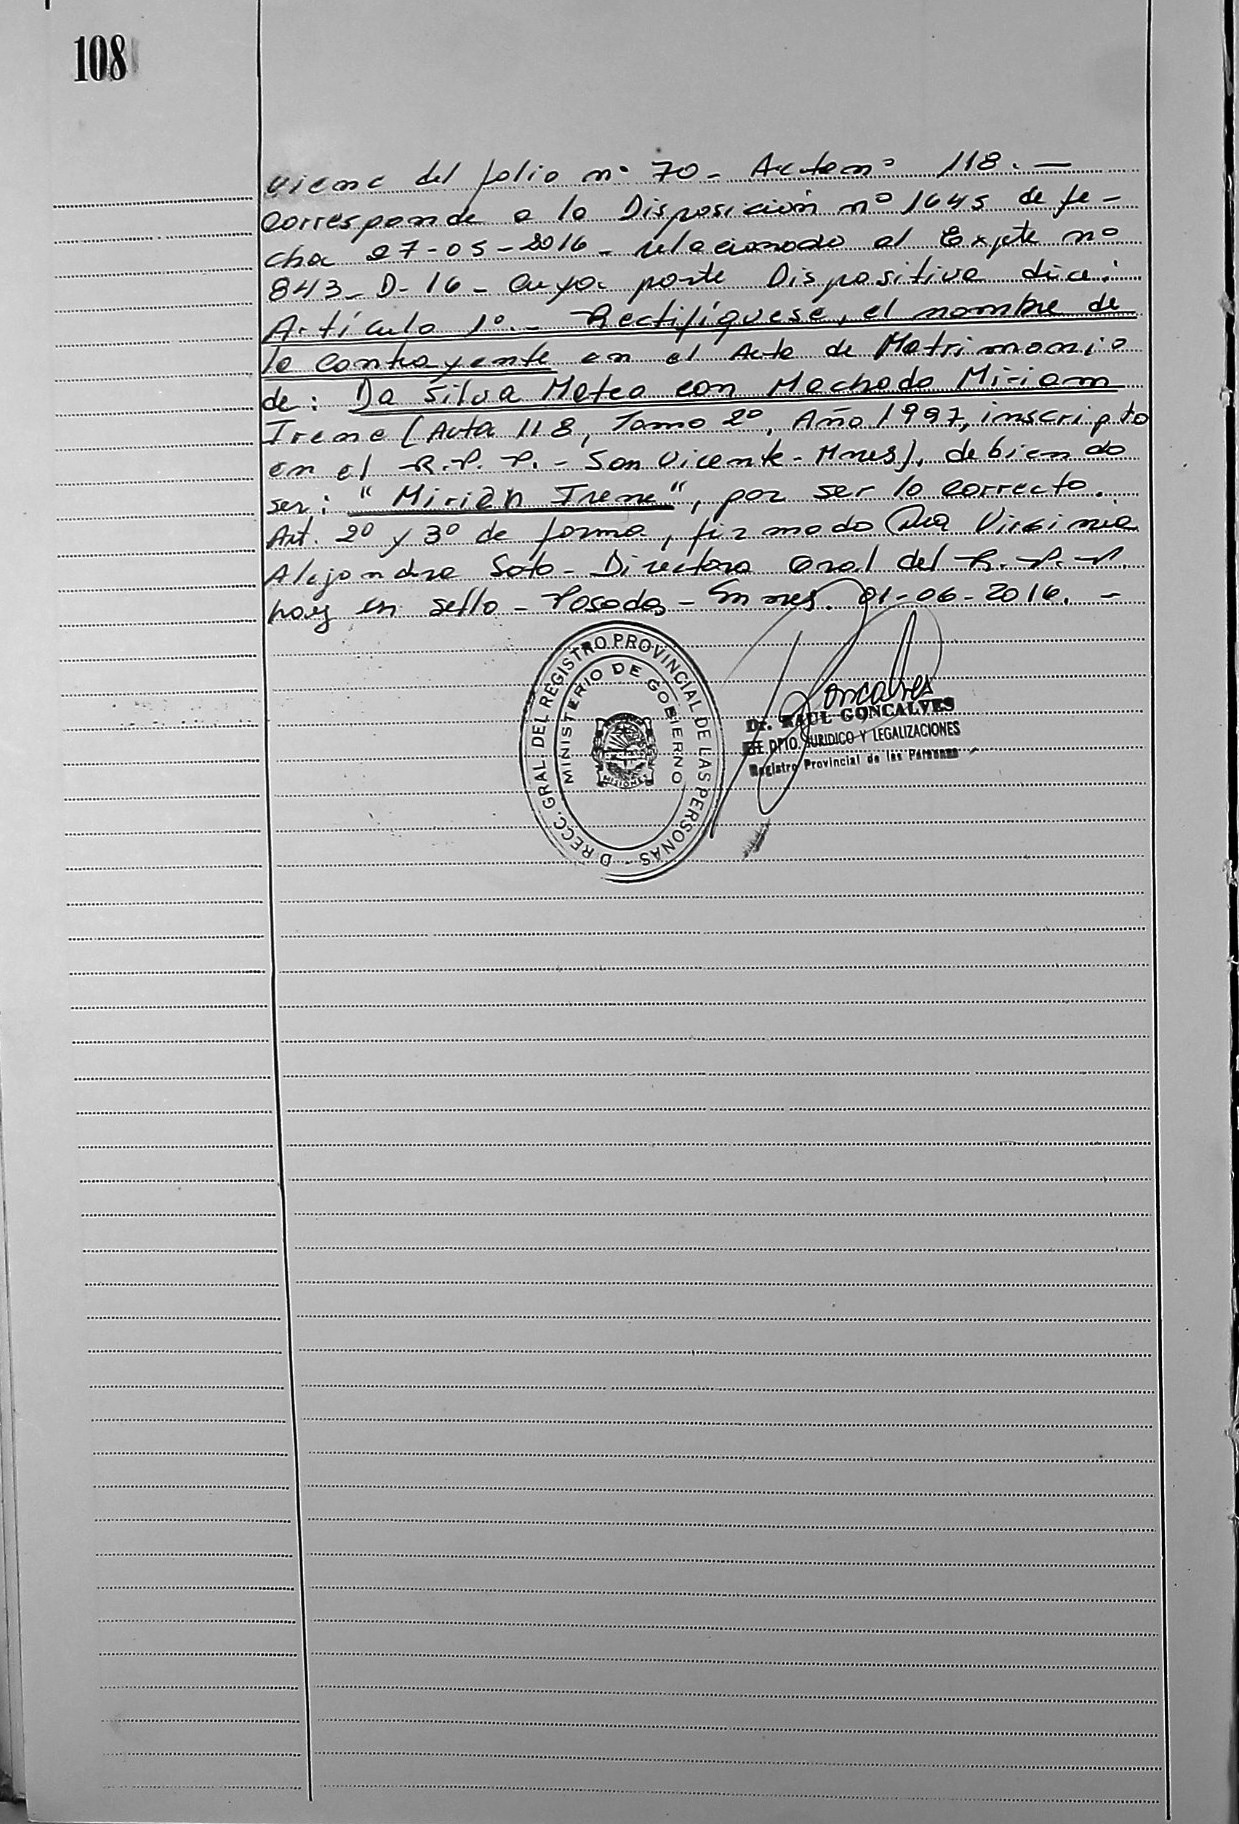 108
Viene del folio nº 70 - Acta nº 118. -
Corresponde a la Disposición nº 1645 de fe-
cha 27-05-2016 - relacionado al Expte nº
843-D-16 - cuya parte Dispositiva dice:
Artículo 1º.- Rectifíquese, el nombre de
la contrayente en el Acta de Matrimonio
de: Da Silva Mateo con Machado Miriam
Irene (Acta 118, Tomo 2º, Año 1997, inscripto
en el R.P.P. - San Vicente - Mnes), debiendo
ser: "Mirian Irene", por ser lo correcto.
Art. 2º y 3º de forma, firmado Dra Virginia
Alejandra Soto - Directora Gral del R.P.P.
hay un sello - Posadas - Mnes. 01-06-2016. -
DIRECC. GRAL. DEL REGISTRO PROVINCIAL DE LAS PERSONAS -
MINISTERIO DE GOBIERNO
MISIONES
Goncalves
Dr. RAUL GONCALVES
JEFE DPTO. JURIDICO Y LEGALIZACIONES
Registro Provincial de las Personas